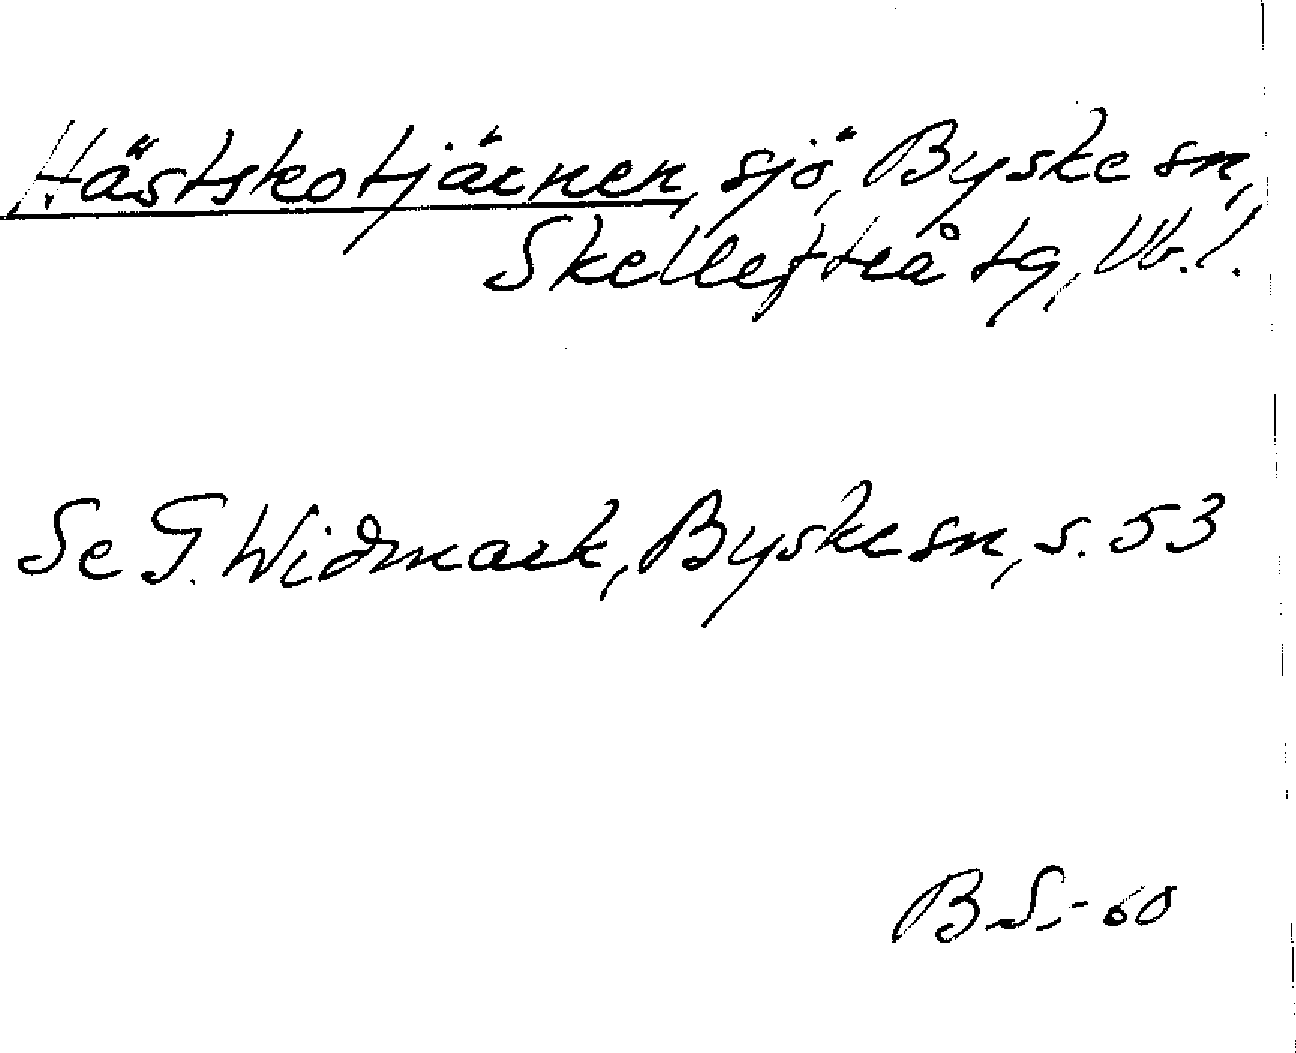 Hästskotjärnen, sjö, Byske sn,
Skellefteå tg, Vb.l.
Se G. Widmark, Byske sn, s. 53
B.S. -60